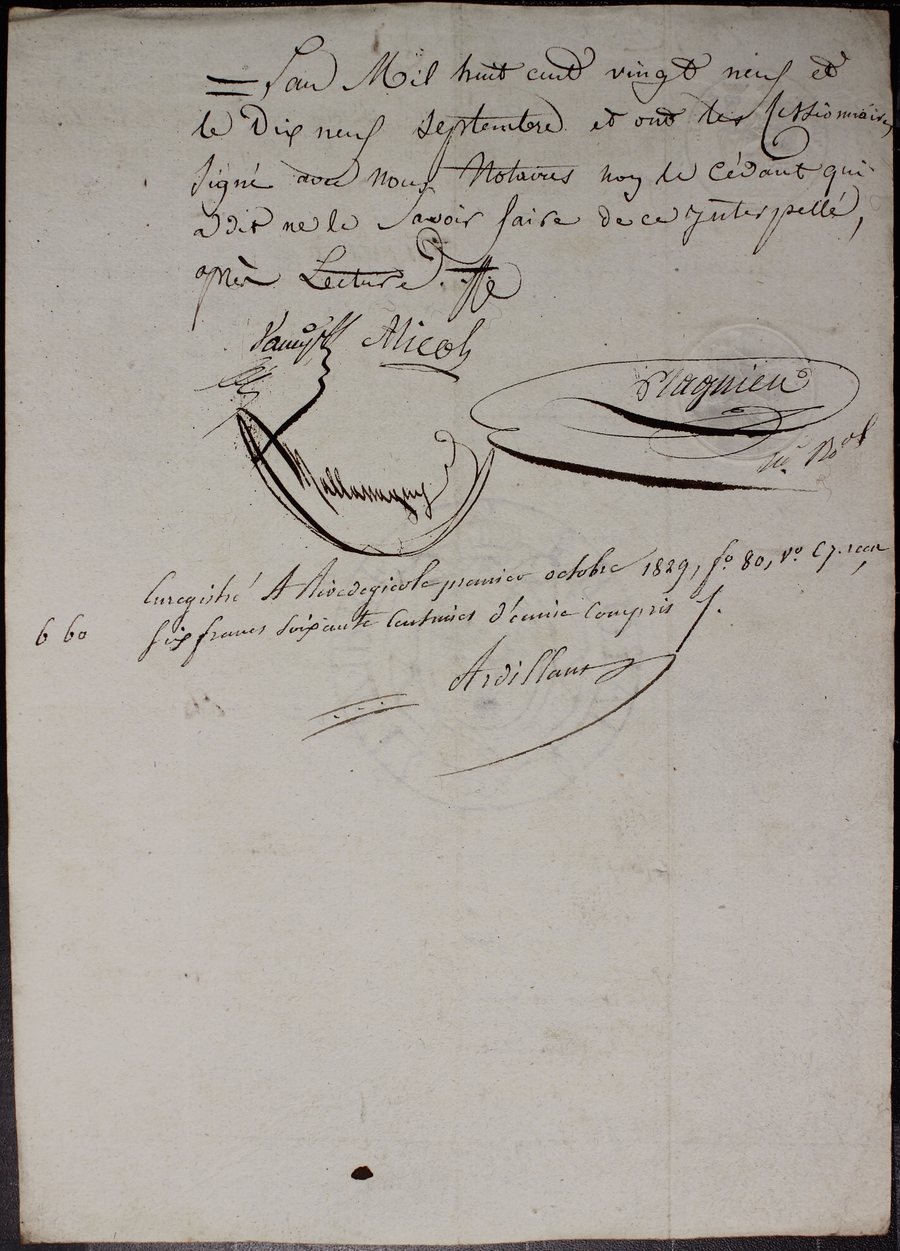 L'an Mil huit cent vingt neuf et
le Dix neuf septembre et ont les Cessionnaires
signé avec nous Notaires non le Cédant qui
a dit ne le savoir faire de ce ynterpellé,
après Lecture.
Nicol
Plagnieu
nre Roal
Mallassagny
Enregistré A Rivedegier le premier octobre 1829, fo. 80, vo. C 7. recu
6 60 six francs soixante Centimes d'écime Compris
Ardillant